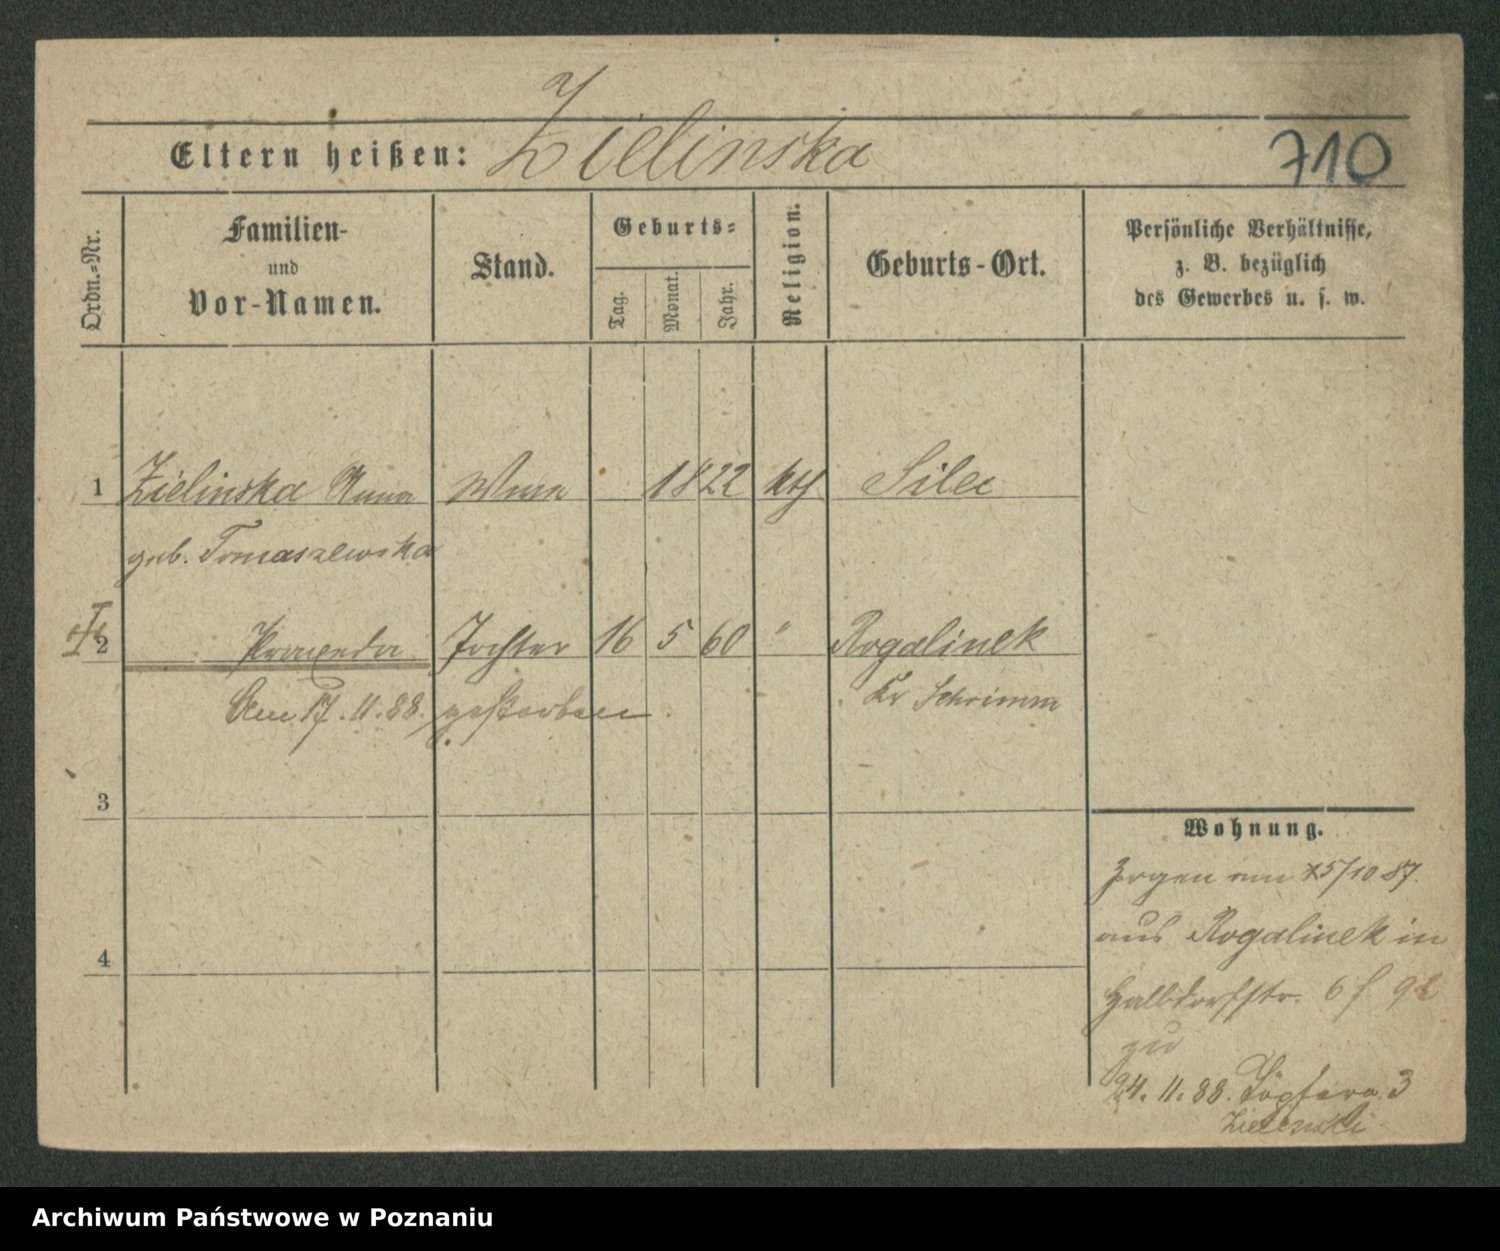 Eltern heißen: Zielinska
710
Ordn.-Nr.
Familien-
und
Vor-Namen.
Stand.
Geburts-
Tag.
Monat.
Jahr.
Religion.
Geburts-Ort.
Persönliche Verhältnisse,
z. B. bezüglich
des Gewerbes u. s. w.
1 Zielinska Anna 1822 kth
geb. Tomaszewska
2 Praxeda Tochter 16 5 60 " Rogalinek
Am 17.11.88. gestorben. Kr Schrimm
3
4
Wohnung.
Zogen am 5/10 87.
aus Rogalinek in
Halbdorfstr. 6
zu
24.11.88. 3
Zielinski
Archiwum Państwowe w Poznaniu